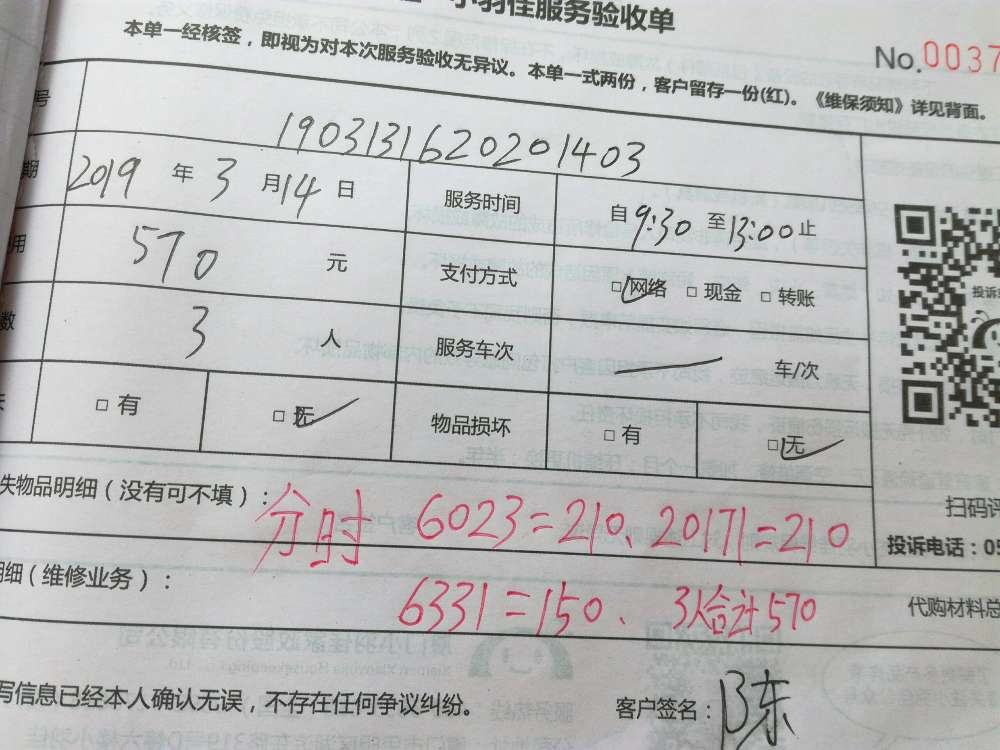 小羽佳服务验收单
No.0037
本单一经核签，即视为对本次服务验收无异议。本单一式两份，客户留存一份(红)。《维保须知》详见背面。
号 190313162020201403
期 2019 年 3 月 14 日 服务时间 自 9:30 至 13:00 止
用 570 元 支付方式 □网络 □现金 □转账
数 3 人 服务车次 车/次
□有 □无 物品损坏 □有 □无
投诉
扫码评
失物品明细（没有可不填）： 分时 6023=210、20171=210
投诉电话：05
明细（维修业务）： 6331=150、 3人合计570
代购材料总
写信息已经本人确认无误，不存在任何争议纠纷。 客户签名：